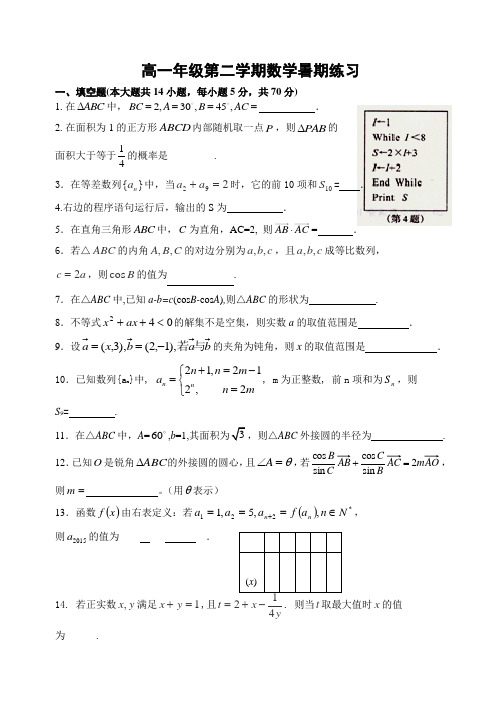 高一年级第二学期数学暑期练习
一、填空题(本大题共14小题，每小题5分，共70分)
1.在ΔABC中，BC = 2, A = 30°, B = 45°, AC = ．
2.在面积为1的正方形ABCD内部随机取一点P，则ΔPAB的
面积大于等于1/4的概率是 ．
3．在等差数列{aₙ}中，当a₂ + a₉ = 2时，它的前10项和S₁₀= ．
4.右边的程序语句运行后，输出的S为 ．
I←1
While I＜8
S←2×I+3
I←I+2
End While
Print S
（第4题）
5．在直角三角形ABC中，C为直角，AC=2, 则AB·AC = ．
6．若△ABC的内角A, B, C的对边分别为a, b, c，且a, b, c成等比数列，
c = 2a，则cos B的值为 .
7．在△ABC中,已知a-b=c(cosB-cosA),则△ABC的形状为 .
8．不等式x² + ax + 4 < 0的解集不是空集，则实数a的取值范围是 ．
9．设a = (x,3), b = (2,−1), 若a与b的夹角为钝角，则x的取值范围是 ．
10．已知数列{aₙ}中，aₙ = {2n+1, n = 2m−1; 2ⁿ, n = 2m，m为正整数，前n项和为Sₙ，则
S₉= .
11．在△ABC中，A= 60°,b=1,其面积为√3，则△ABC外接圆的半径为 .
12．已知O是锐角ΔABC的外接圆的圆心，且∠A = θ，若cosB/sinC AB + cosC/sinB AC = 2mAO，
则m = 。（用θ表示）
13．函数f(x)由右表定义：若a₁ = 1, a₂ = 5, aₙ₊₂ = f(aₙ), n ∈ N*，
则a₂₀₁₅的值为 ．
(x)
14. 若正实数x, y满足x + y = 1, 且t = 2 + x − 1/4y. 则当t取最大值时x的值
为 .